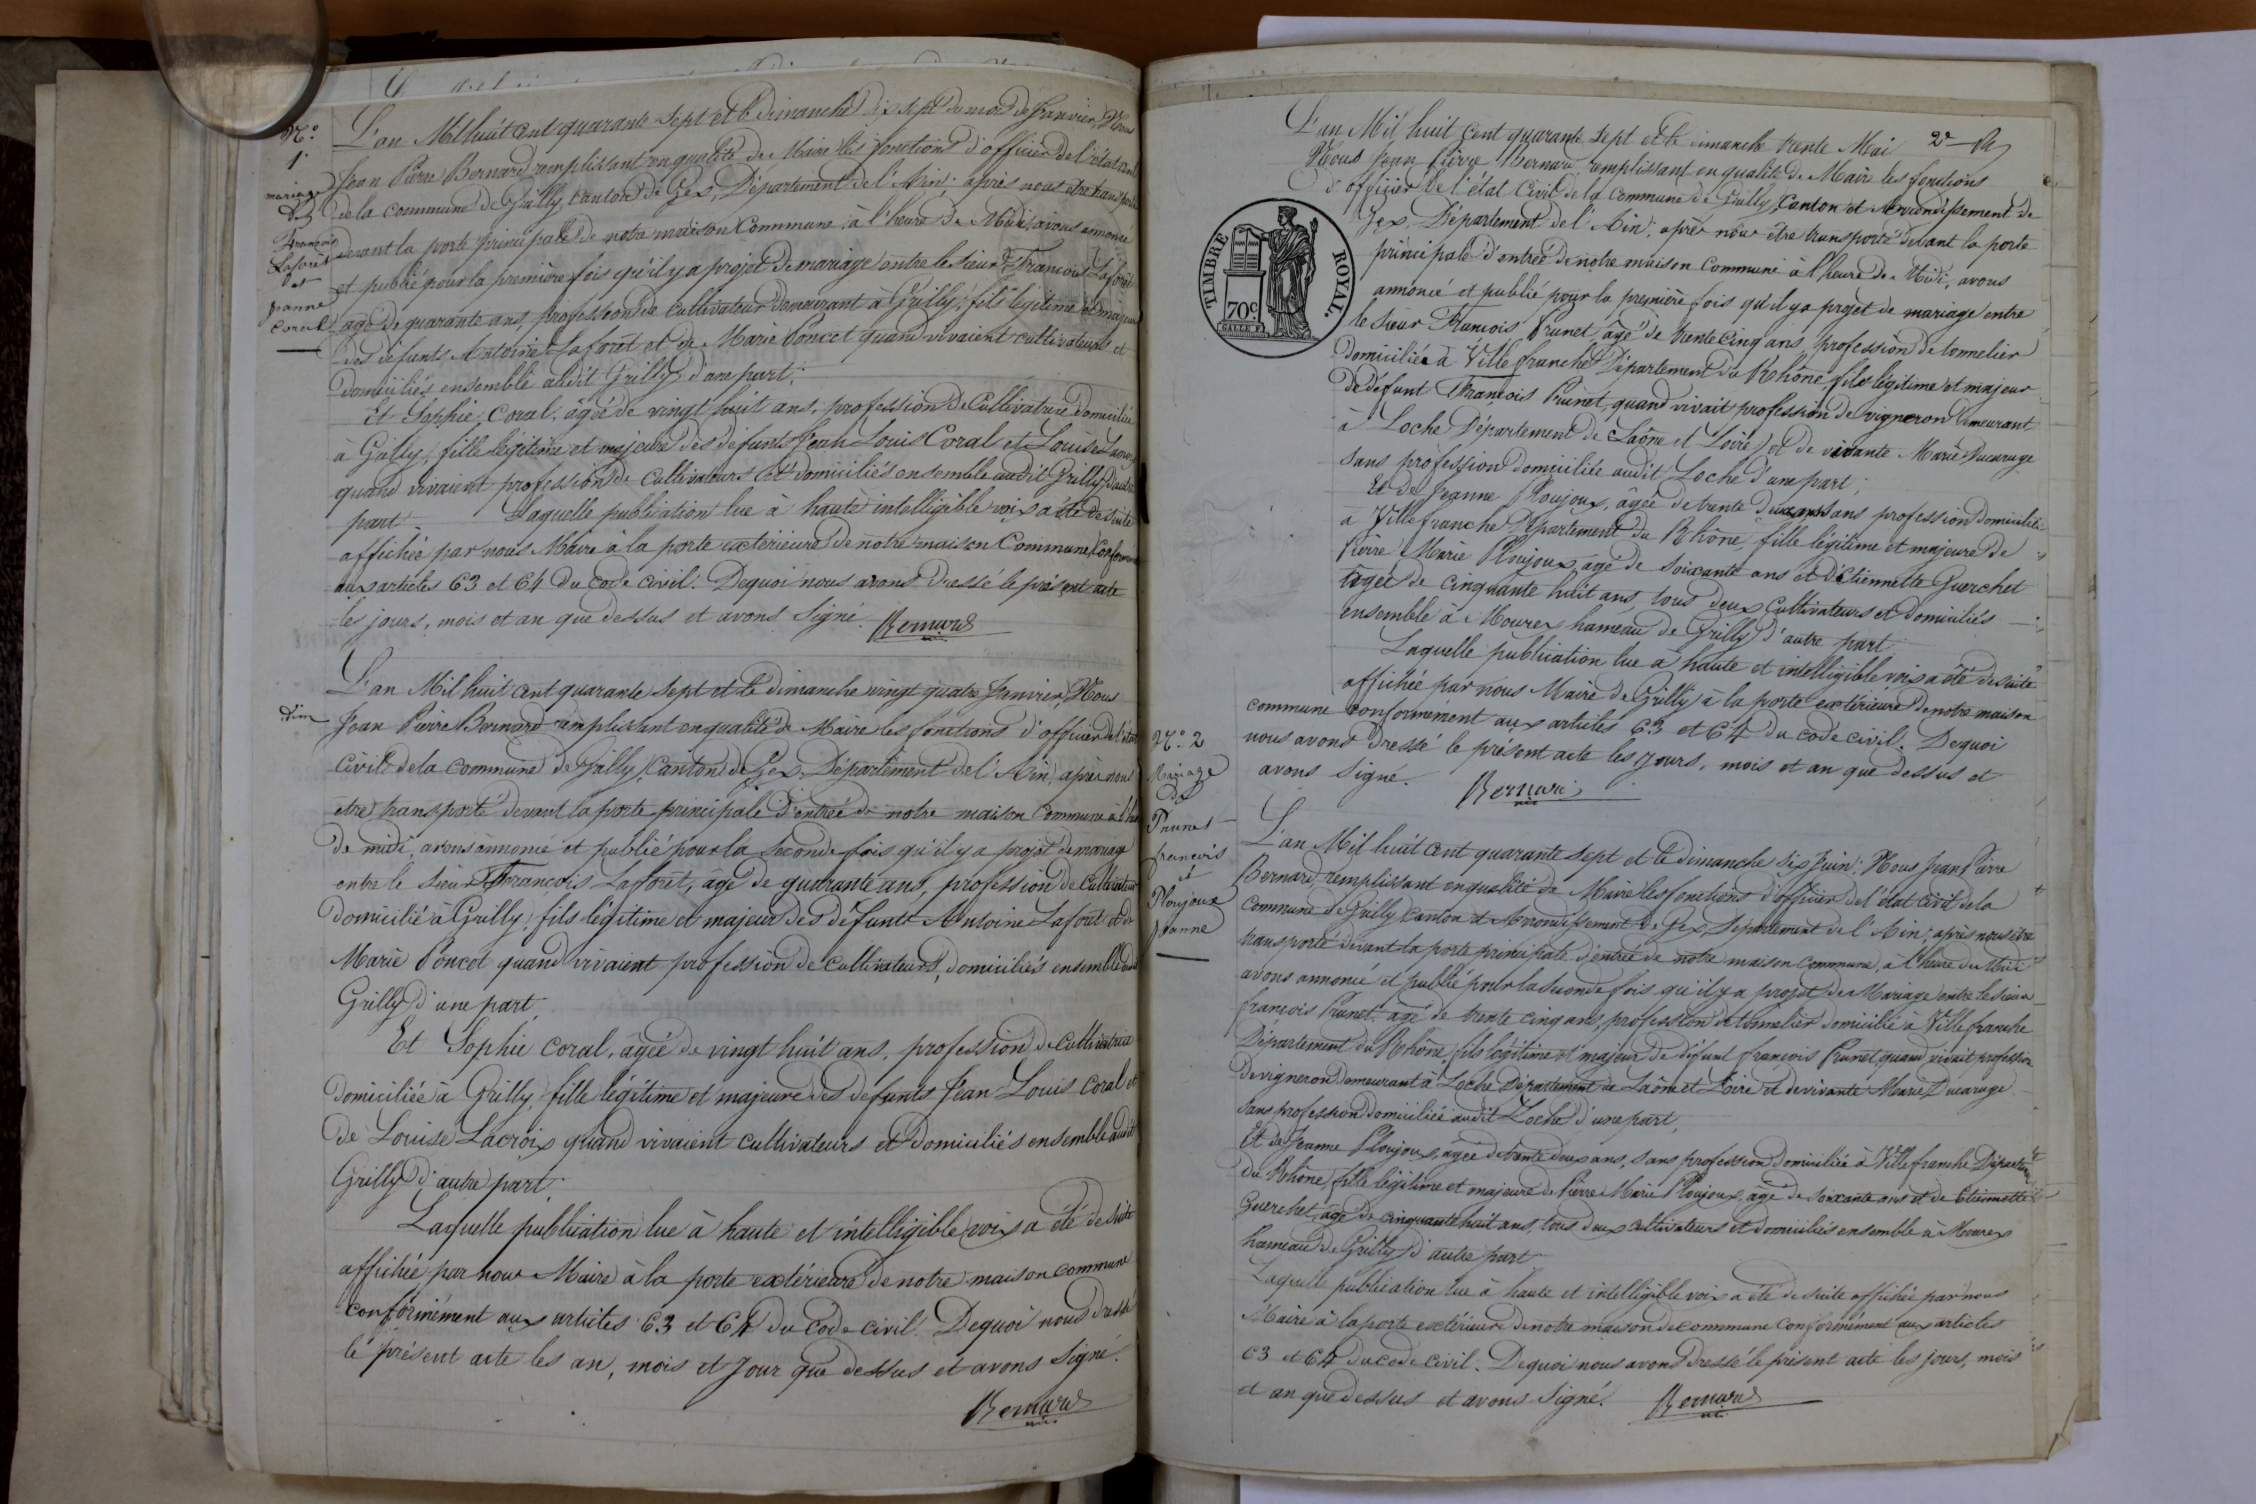 N.o
1.
mariage
de
François
Laforêt
et
Jeanne
Coral
L'an Mil huit cent quarante sept et le dimanche dix sept du mois de Janvier, Nous
Jean Pierre Bernard remplissant en qualité de Maire les fonctions d'officier de l'état civil
de la commune de Grilly canton de Gex, Département de l'Ain; après nous être transporté
devant la porte principale de notre maison Commune, à l'heure de Midi, avons annoncé
et publié pour la première fois qu'il y a projet de mariage entre le sieur François Laforêt
âgé de quarante ans, profession de Cultivateur demeurant à Grilly; fils légitime et majeur
des défunts Antoine Laforêt et de Marie Poncet quand vivaient cultivateurs et
Domiciliés ensemble audit Grilly d'une part;
Et Sophie Coral, âgée de vingt huit ans, profession de Cultivatrice domiciliée
à Grilly; fille légitime et majeure des défunts Jean Louis Coral et Louise Lacroix
quand vivaient profession de Cultivateurs et domiciliés ensemble audit Grilly d'autre
part. Laquelle publication lue à haute intelligible voix a été de suite
affichée par nous Maire à la porte extérieure de notre maison Commune, Conformément
aux articles 63 et 64 du code civil. Dequoi nous avons dressé le présent acte
les jours, mois et an que dessus et avons signé. Bernard
L'an Mil huit cent quarante sept et le dimanche vingt quatre Janvier, Nous
Jean Pierre Bernard remplissant en qualité de Maire les fonctions d'officier de l'état
Civil de la commune de Grilly, Canton de Gex, Département de l'Ain; après nous
être transporté devant la porte principale d'entrée de notre maison Commune à l'heure
de midi, avons annoncé et publié pour la seconde fois qu'il y a projet de mariage
entre le sieur François Laforêt, âgé de quarante ans, profession de Cultivateur
domicilié à Grilly, fils légitime et majeur des défunts Antoine Laforêt et de
Marie Poncet quand vivaient profession de Cultivateurs, domiciliés ensemble audit
Grilly d'une part.
Et Sophie Coral, âgée de vingt huit ans, profession de Cultivatrice
domiciliée à Grilly, fille légitime et majeure des défunts Jean Louis Coral et
de Louise Lacroix quand vivaient cultivateurs et domiciliés ensemble audit
Grilly d'autre part.
Laquelle publication lue à haute et intelligible voix a été de suite
affichée par nous Maire à la porte extérieure de notre maison commune
conformément aux articles 63 et 64 du Code civil. Dequoi nous dressé
le présent acte les an, mois et jour que dessus et avons signé.
Bernard
2e
TIMBRE ROYAL.
70c.
L'an Mil huit cent quarante sept et le dimanche trente Mai
Nous Jean Pierre Bernard remplissant en qualité de Maire les fonctions
d'officier de l'état Civil de la Commune de Grilly, Canton et Arrondissement de
Gex, Département de l'Ain; après nous être transporté devant la porte
principale d'entrée de notre maison Commune à l'heure de Midi, avons
annoncé et publié pour la première fois qu'il y a projet de mariage entre
le sieur François Prunet, âgé de trente cinq ans, profession de tonnelier
domicilié à Ville franche Département du Rhône, fils légitime et majeur
de défunt François Prunet, quand vivait profession de vigneron demeurant
à Loche Département de Saône et Loire, et de vivante Marie Ducaruge
sans profession domiciliée audit Loche d'une part;
Et de Jeanne Ploujoux, âgée de trente deux ans profession domiciliée
à Ville franche Département du Rhône, fille légitime et majeure de
Pierre Marie Ploujoux, âgé de soixante ans et d'Etiennette Guerchet
âgée de cinquante huit ans tous deux Cultivateurs et domiciliés
ensemble à Mourex hameau de Grilly d'autre part
Laquelle publication lue à haute et intelligible voix a été de suite
affichée par nous Maire de Grilly à la porte extérieure de notre maison
commune conformément aux articles 63 et 64 du code civil. Dequoi
nous avons dressé le présent acte les jours, mois et an que dessus et
avons signé. Bernard
N.o 2
Mariage
de
Prunet
françois
et
Ploujoux
Jeanne
L'an Mil huit cent quarante sept et le dimanche six Juin; Nous Jean Pierre
Bernard, remplissant en qualité de Maire les fonctions d'officier de l'état civil de la
Commune de Grilly canton et Arrondissement de Gex, Département de l'Ain; après nous être
transporté devant la porte principale d'entrée de notre maison commune, à l'heure du Midi
avons annoncé et publié pour la seconde fois qu'il y a projet de Mariage entre le sieur
françois Prunet, âgé de trente cinq ans, profession de tonnelier domicilié à Ville franche
Département du Rhône, fils légitime et majeur de défunt françois Prunet, quand vivait profession
de vigneron demeurant à Loche Département de Saône et Loire et de vivante Marie Ducaruge
sans profession domiciliée audit Loche d'une part.
Et de Jeanne Ploujoux, âgée de trente deux ans, sans profession domiciliée à Ville franche Département
du Rhône, fille légitime et majeure de Pierre Marie Ploujoux, âgé de soixante ans et de Etiennette
Guerchet, âgée de cinquante huit ans, tous deux cultivateurs et domiciliés ensemble à Mourex
hameau de Grilly d'autre part
Laquelle publication lue à haute et intelligible voix a été de suite affichée par nous
Maire à la porte extérieure de notre maison de commune Conformément aux articles
63 et 64 du code civil. Dequoi nous avons dressé le présent acte les jours, mois
et an que dessus et avons signé. Bernard